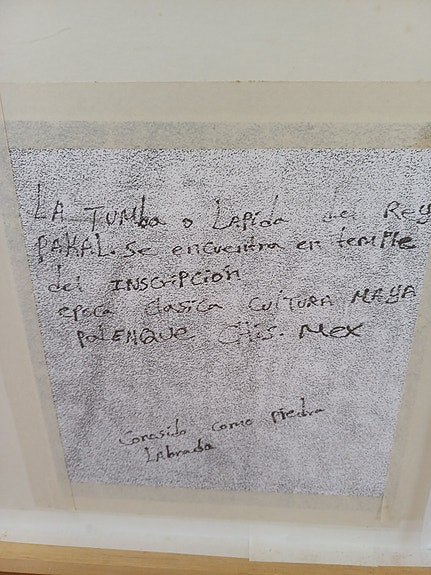 LA TUMba o LAPida del REY
PAKAL. Se encuentra en temple
del INSCRIPCION
epoca clasica CULTURA MAYA
PALENQUE Chis. Mex
Conosido como Piedra
Labrada